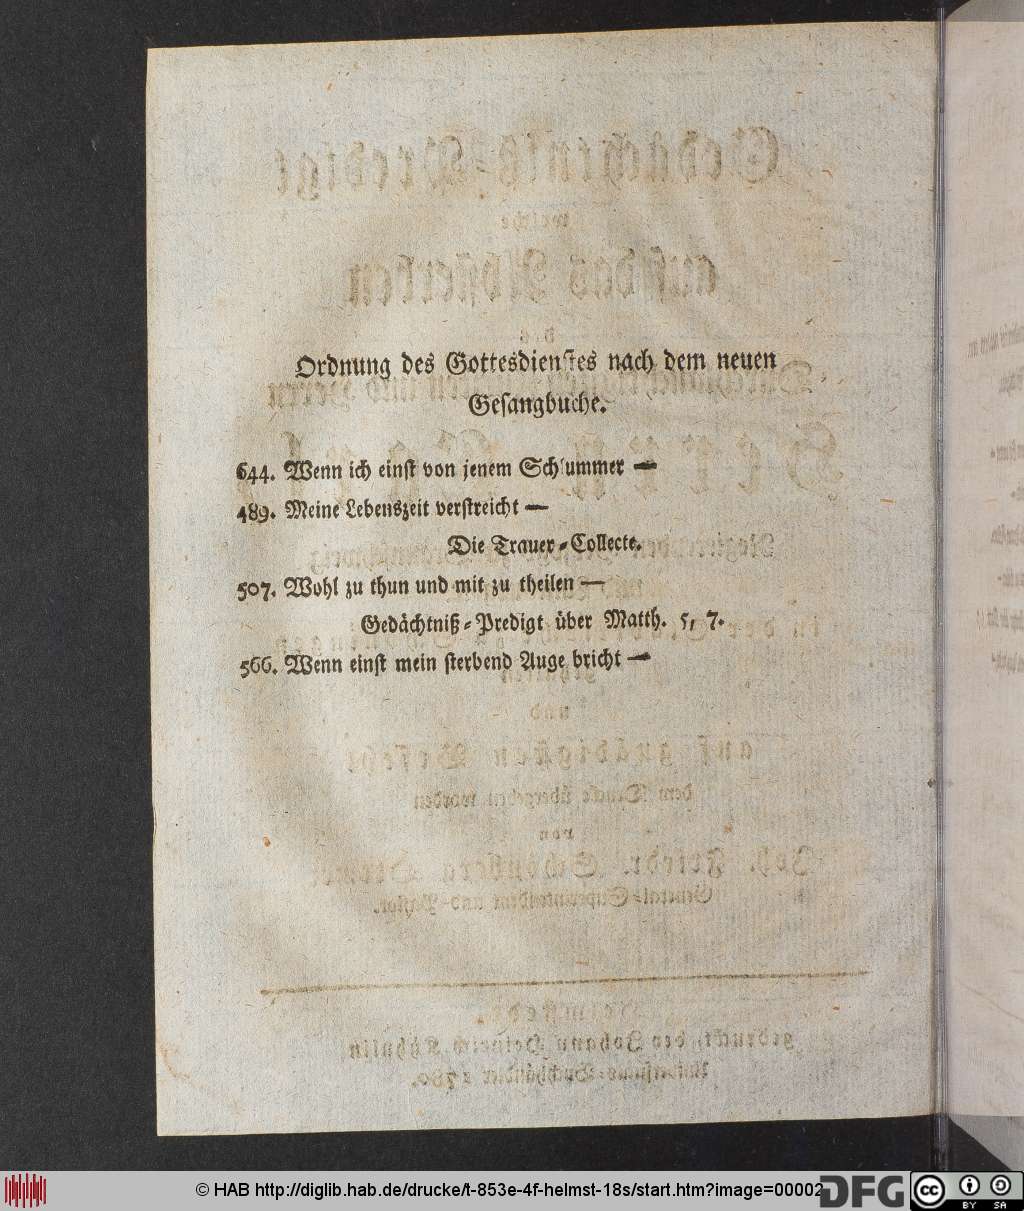 Ordnung des Gottesdienstes nach dem neuen
Gesangbuche.
644. Wenn ich einst von jenem Schlummer —
489. Meine Lebenszeit verstreicht —
Die Trauer-Collecte.
507. Wohl zu thun und mit zu theilen —
Gedächtniß-Predigt über Matth. 5, 7.
566. Wenn einst mein sterbend Auge bricht —
© HAB http://diglib.hab.de/drucke/t-853e-4f-helmst-18s/start.htm?image=00002
DFG
cc BY SA